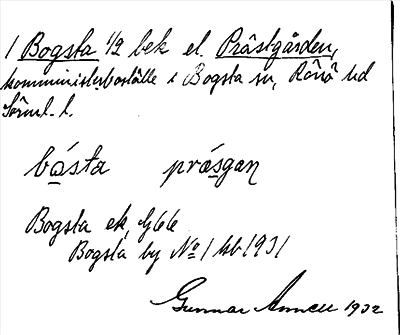 1 Bogsta 1/2 bek el. Prästgården,
komministerboställe i Bogsta sn, Rönö hd
Sörml. l.
bósta prásgan
Bogsta ek, G66
Bogsta by No 1 hb 1931
Gunnar 1932